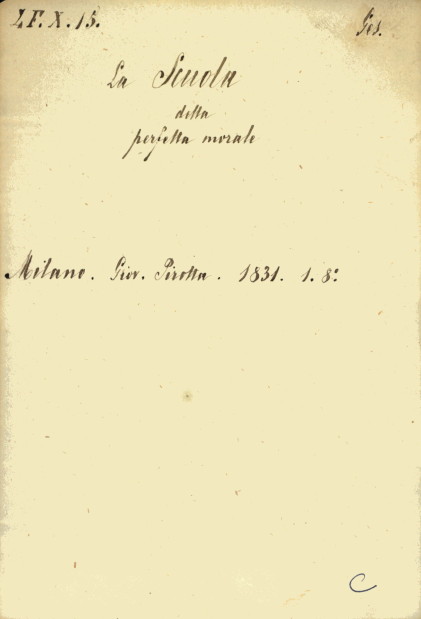 LF. X. 15.
Ges.
La Scuola
della
perfetta morale
Milano. Giov. Pirotta. 1831. 1. 8º
C